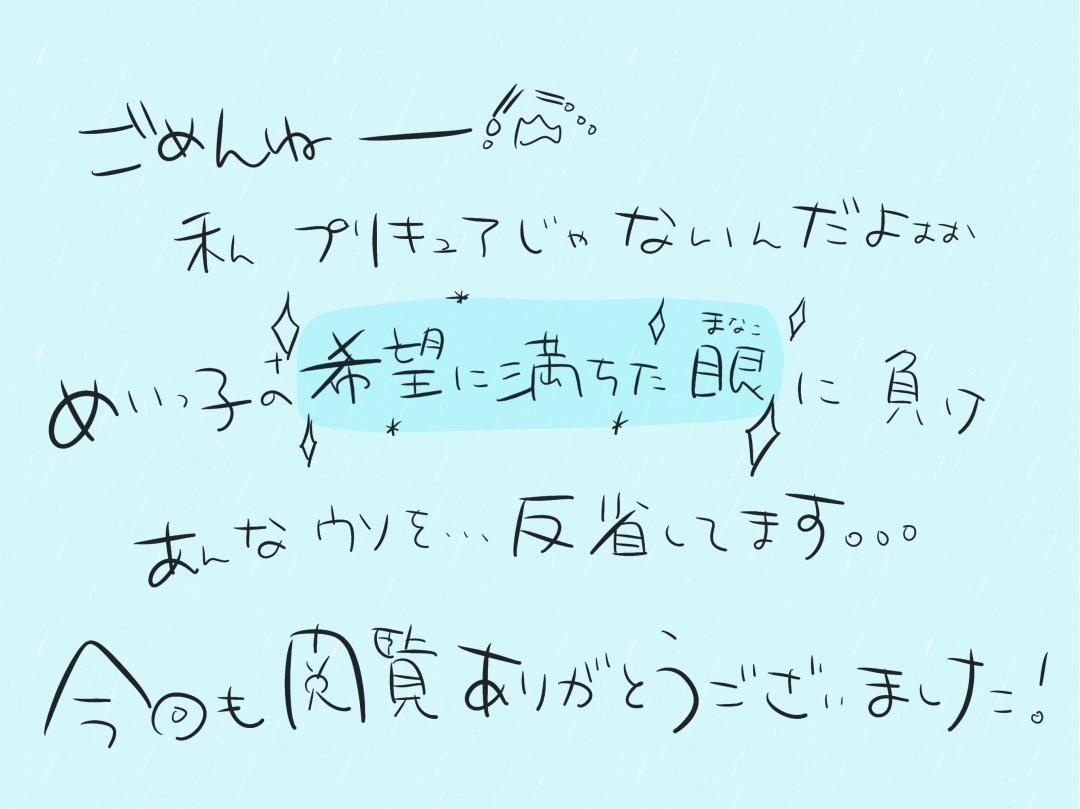 ごめんねー
私 プリキュアじゃないんだよぉぉぉ
まなこ
めいっ子の希望に満ちた眼に負け
あんなウソを…反省してます。。。
今回も閲覧ありがとうございました!